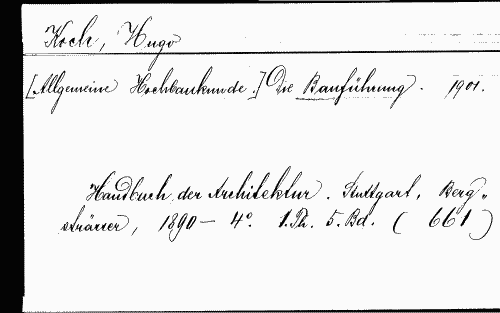 Koch, Hugo
[Allgemeine Hochbaukunde.] Die Bauführung. 1901.
Handbuch der Architektur. Stuttgart, Berg-
strässer, 1890 — 4°. 1. Th. 5. Bd. (661)